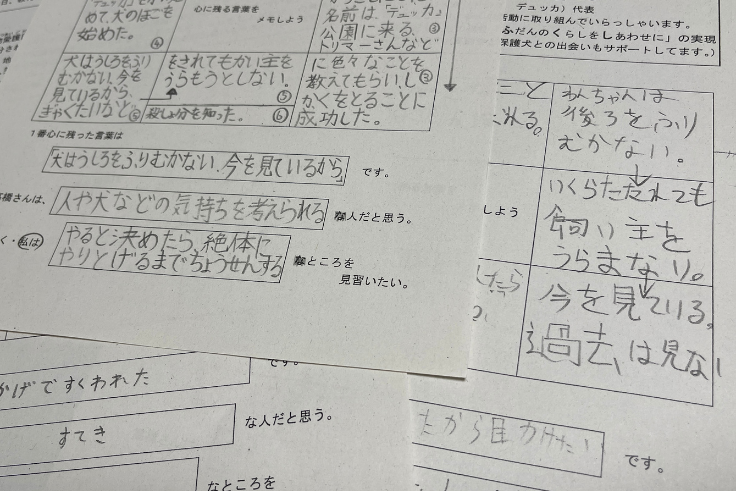 めて、犬のほごも
始めた。
④
心に残る言葉を
メモしよう
名前は、「デュッカ」
公園に来る、③
トリマーさんなど
犬はうしろをふり
むかない、今を
見ているから、
ぎゃくたいなど
をされてもかい主を
うらもうとしない。
⑤
殺しょ分を知った。
⑥
に色々なことを
教えてもらい、し②
かくをとることに
成功した。
1番心に残った言葉は
「犬はうしろをふりむかない、今を見ているから」
です。
橋さんは、
人や犬などの気持ちを考えられる
人だと思う。
く・私は
やると決めたら、絶体に
やりとげるまでちょうせんする
ところを
見習いたい。
かげですくわれた
です。
すてき
な人だと思う。
なところを
デュッカ）代表
活動に取り組んでいらっしゃいます。
ふだんのくらしをしあわせに」の実現
保護犬との出会いもサポートしてます。）
こと
れる。
しよう
たら
わんちゃんは
後ろをふり
むかない。
いくらたたれても
飼い主を
うらまない。
今を見ている。
過去は見ない
です。